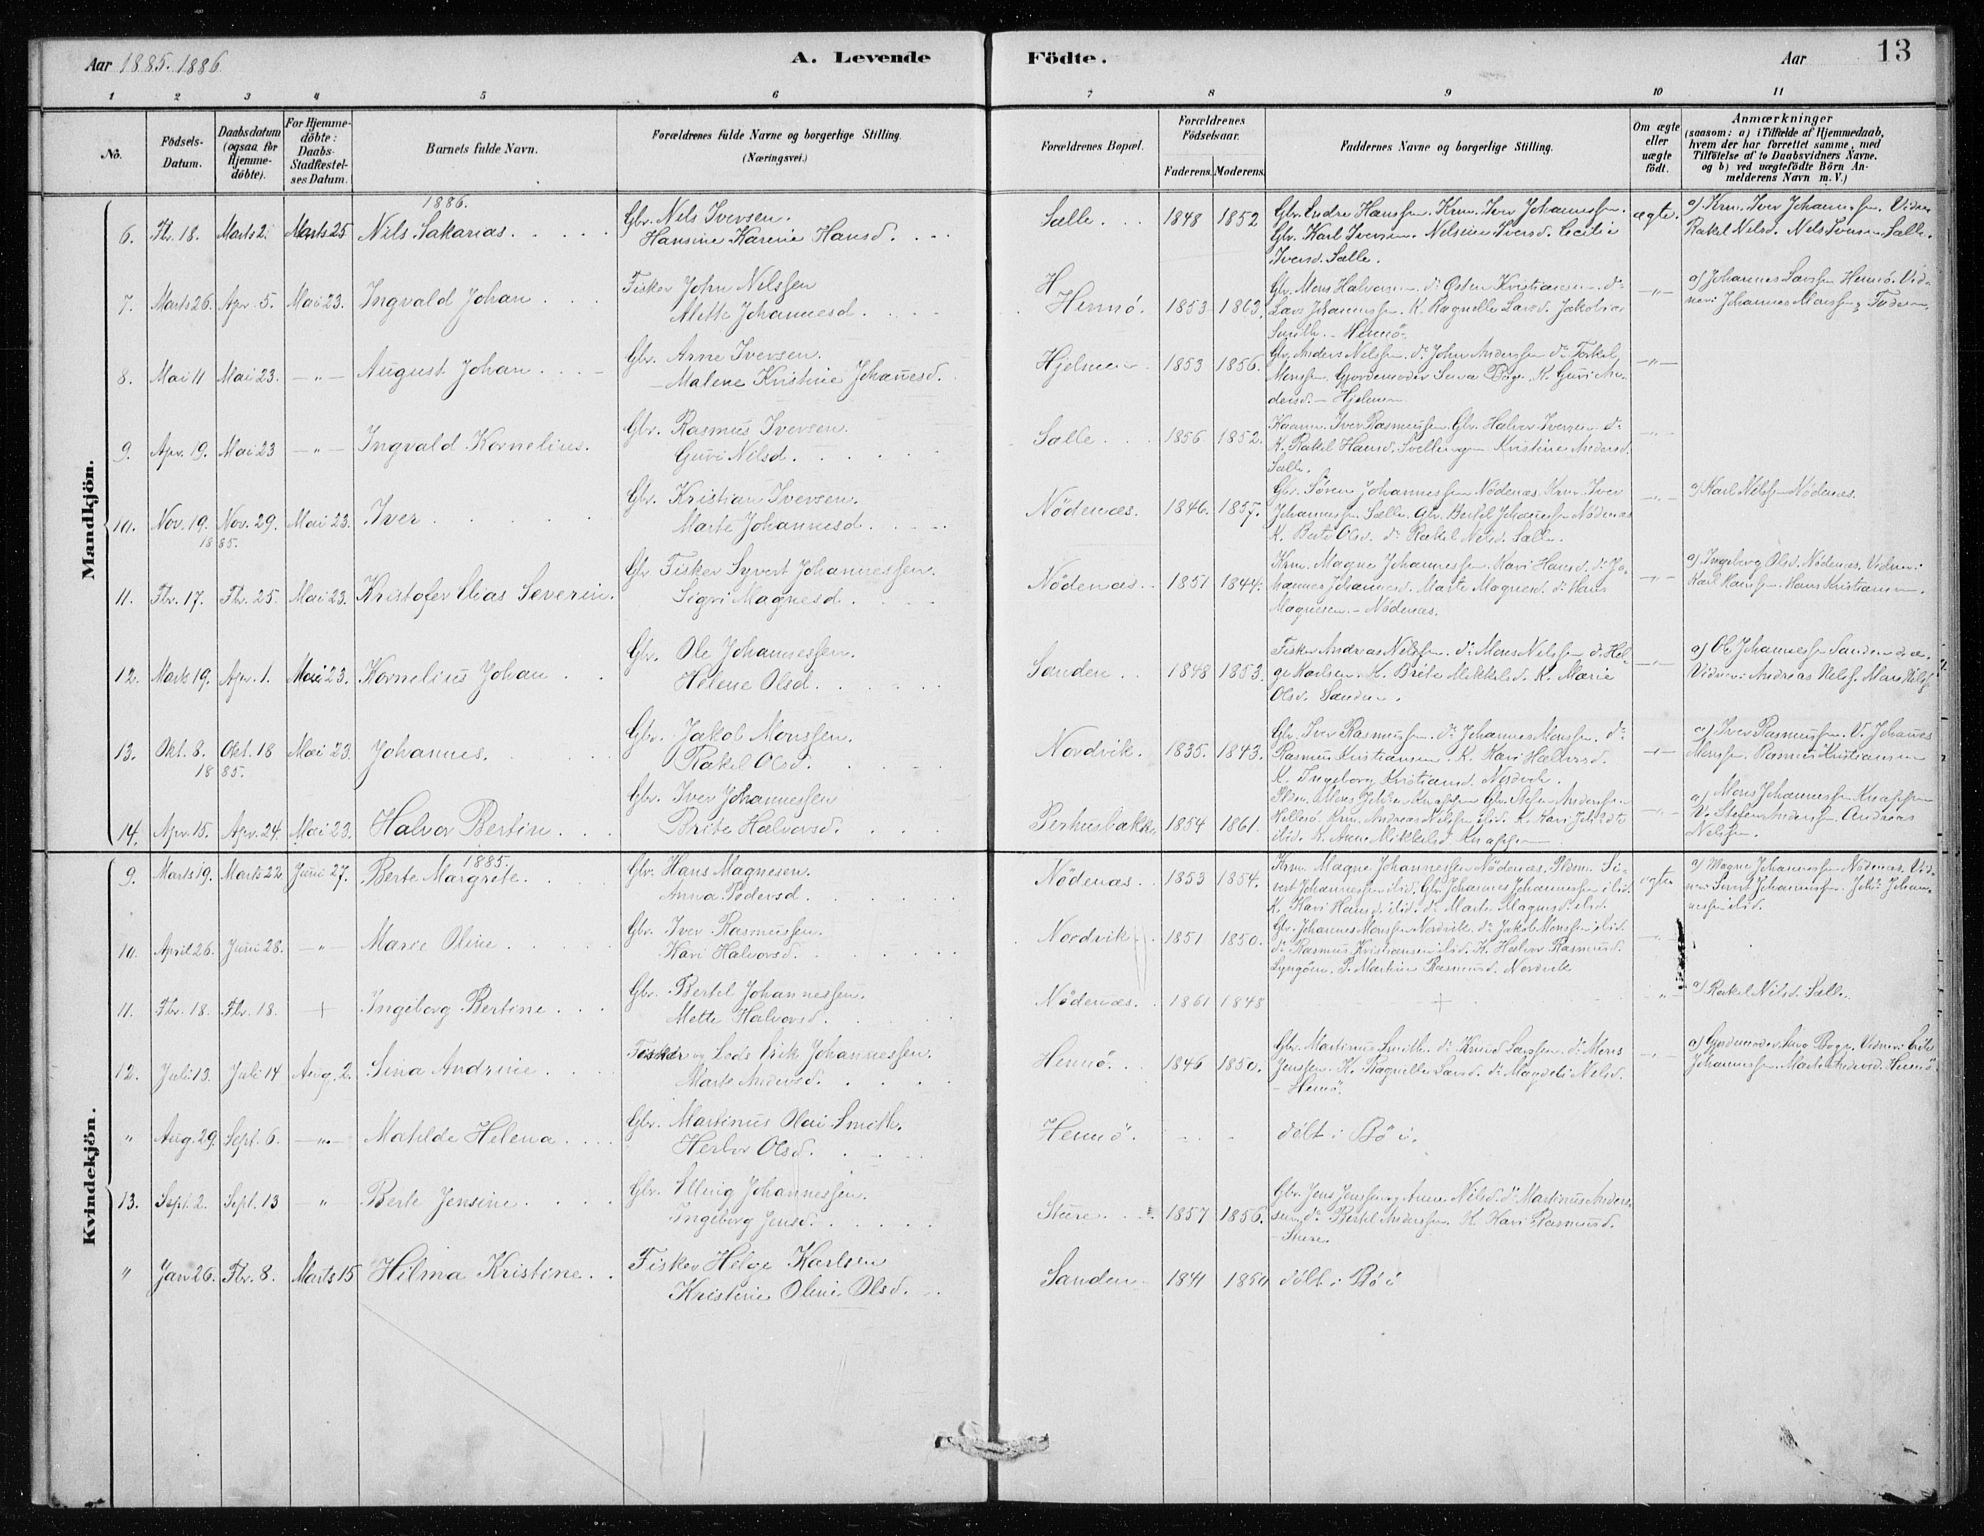 Aar 1885. 1886
A. Levende
Födte.
Aar
13
1 2 3 4 5 6 7 8 9 10 11
No.
Födsels-Datum.
Daabsdatum (ogsaa for Hjemme-döbte).
For Hjemme-döbte: Daabs-Stadfæstel-ses Datum.
Barnets fulde Navn.
Forældrenes fulde Navne og borgerlige Stilling.
(Næringsvei.)
Forældrenes Bopæl.
Forældrenes Födselsaar.
Faderens. Moderens.
Faddernes Navne og borgerlige Stilling.
Om ægte eller uægte födt.
Anmærkninger
(saasom: a) i Tilfælde af Hjemmedaab,
hvem der har forrettet samme, med
Tilföielse af to Daabsvidners Navne.
og b) ved uægtefödte Börn An-
melderens Navn m. V.)
Mandkjön.
1886.
6. Fb. 18. Marts 2. Marts 25 Nils Sakarias. Gbr. Nils Iversen.
Hansine Karine Hansd.
Sælle 1848 1852 Gbr. Endre Hanssen. Krm. Iver Johannessen.
Gbr. Karl Iversen. Nelsine Iversd. Cecilie
Iversd. Sælle.
ægte. a) Krm. Iver Johannessen. Vidner
Rakel Nilsd. Nels Iversen Sælle.
7. Marts 26. Apr. 5. Mai 23. Ingvald Johan Fisker John Nilssen
Alette Johannesd.
Hennö. 1853 1863. Gbr. Mons Halvorsen. do Østen Kristiansen. do
Lars Johannessen. K. Ragnille Larsd. Jakobia
Smith. - Hennö.
-"- a) Johannes Larssen Hennö. Vid-
ner: Johannes Monssen
8. Mai 11 Mai 23. -"- August Johan Gbr. Arne Iversen.
Malene Kristine Johanesd.
Hjelmen 1853 1856. Gbr. Anders Nelssen. do John Anderssen do Torkel
Monssen. Gjordemoder K. Guri An-
dersd. - Hjelmen.
-"-
9. Apr. 19. Mai 23 -"- Ingvald Kornelius. Gbr. Rasmus Iversen.
Guri Nilsd.
Sælle 1856 1852. Iver Rasmussen. Gbr. Halvor Iversen do
K. Rakel Hansd. Kristine Andersd.
Sælle.
-"-
10. Nov. 19. Nov. 29. Mai 23. Iver Gbr. Kristian Iversen.
1885.
Marte Johannesd.
Nödenæs. 1846. 1857. Gbr. Sören Johannessen Nödenæs. Krm. Iver
Johannessen Sælle. Gbr. Bertel Johannessen Nödenæs
K. Berte Olsd. do Rakel Nilsd. Sælle.
-"- a) Karl Nelssen Nödenæs.
11. Fbr. 17. Fbr. 25. Mai 23. Kristofer Elias Severin. Gbr Fisker Syvert Johannessen.
Sigri Magnesd.
Nödenæs 1851 1844. Krm. Magne Johannessen. Kari Hansd. do Jo-
hannes Johannesd. Marte Magnesd. do Hans
Magnesen. - Nödenæs.
-"- a) Ingeborg Olsd. Nödenæs. Vidner:
Karl Hanssen. Hans Kristiansen.
12. Marts 19. Apr. 1. Mai 23. Kornelius Johan Gbr. Ole Johannessen.
Helene Olsd.
Sanden 1848 1853. Fisker Andreas Nelssen. do Mons Nelssen do Hel-
ge Karlsen. K. Brite Mikkelsd. K. Marie
Olsd. Sanden.
-"- a) Ole Johannessen Sanden
Vidner: Andreas Nelss. Mons Nelssen
13. Okt. 8. Okt. 18 Mai 23 Johannes. Gbr. Jakob Monssen.
1885.
Rakel Olsd.
Nordvik. 1835. 1843. Gbr. Iver Rasmussen. do Johannes Monssen. do
Rasmus Kristiansen. K. Kari Halvorsd.
K. Ingeborg Kristiansd. Nordvik.
-"- a) Iver Rasmussen. V. Johanes
Monssen. Rasmus Kristiansen
14. Apr. 15. Apr. 24. Mai 23. Halvor Bertin Gbr. Iver Johannessen
Brite Halvorsd.
1854 1861. Mons Knappen Gbr. Anderssen
Krm. Andreas Nelssen ilsd. K. Kari
ilsd. K. Anne Mikkelsd Knappen
-"- a) Mons Johannessen Knappen
V. Stefen Anderssen. Andreas
Nelssen.
Kvindekjön.
1885.
9. Marts 19. Marts 22 Juni 27. Berte Margrete. Gbr. Hans Magnesen.
Anna Pedersd
Nödenæs. 1853 1854. Krm. Magne Johannessen Nödenæs. Si-
vert Johannessen ilsd. Gbr. Johannes Johannessen ilsd.
K. Kari Hansd. ilsd. do Marte Magnesd. ilsd
ægte a) Magne Johannessen Nödenæs. Vid-
ner Sivert Johannessen. Johan-
nessen ilsd.
10. April 26. Juni 28. -"- Marie Oline Gbr. Iver Rasmussen.
Kari Halvorsd.
Nordvik 1851 1850. Gbr. Johannes Monssen Nordvik. do Jakob Monssen ilsd
do Rasmus Kristiansen ilsd. K. Rasmusd.
Martine Rasmusd. Nordvik
-"-
11. Fbr. 18. Fbr. 18. + Ingeborg Bertine Gbr. Bertel Johannessen.
Mette Halvorsd.
Nödenæs. 1861 1848 + " a) Rakel Nilsd. Sælle.
12. Juli 13. Juli 14 Aug. 2. Sina Andrine Fisker og Lods Erik Johannessen.
Marte Andersd.
Hennö. 1846 1850. Gbr. Martinus Smith. do Knud Larssen. do Mons
Jenssen. K. Ragnille Larsd. do Magdeli Nelsd.
- Hennö.
-"- a) Gjordemoder Vidner:
Johannessen. Marte Andersd. Hennö.
" Aug. 29. Sept. 6. -"- Matilde Helena Gbr. Martinus Olai Smith.
Herbor Olsd.
Hennö. - - - döbt i Bö i.
13. Sept. 2. Sept. 13 " Berte Jensine Gbr. Elling Johannessen.
Ingeborg Jensd.
Sture. 1857 1856. Gbr. Jens Jenssen og Anne Nilsd. do Martinus Anders-
sen do Bertel Anderssen K. Kari Rasmusd.
- Sture.
" Jan 26. Fbr. 8. Marts 15 Hilma Kristine Fisker Helge Karlsen
Kristine Oline Olsd.
Sanden 1841 1850 döbt i Bö i